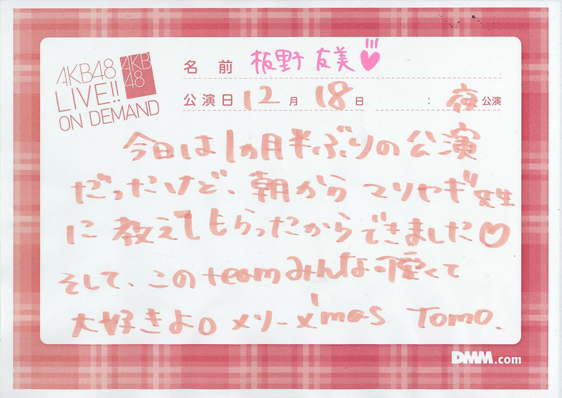 AKB48
LIVE!!
ON DEMAND
AKB
48
名前 板野友美!!!♡
公演日 12月18日 : 夜公演
今日は1カ月半ぶりの公演
だったけど、朝からマリヤギ先生
に教えてもらったからできました♡
そして、このteamみんな優くて
大好きよ。メリーX'mas Tomo.
DMM.com